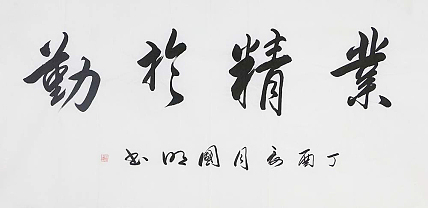 業精於勤
丁酉春月國明书